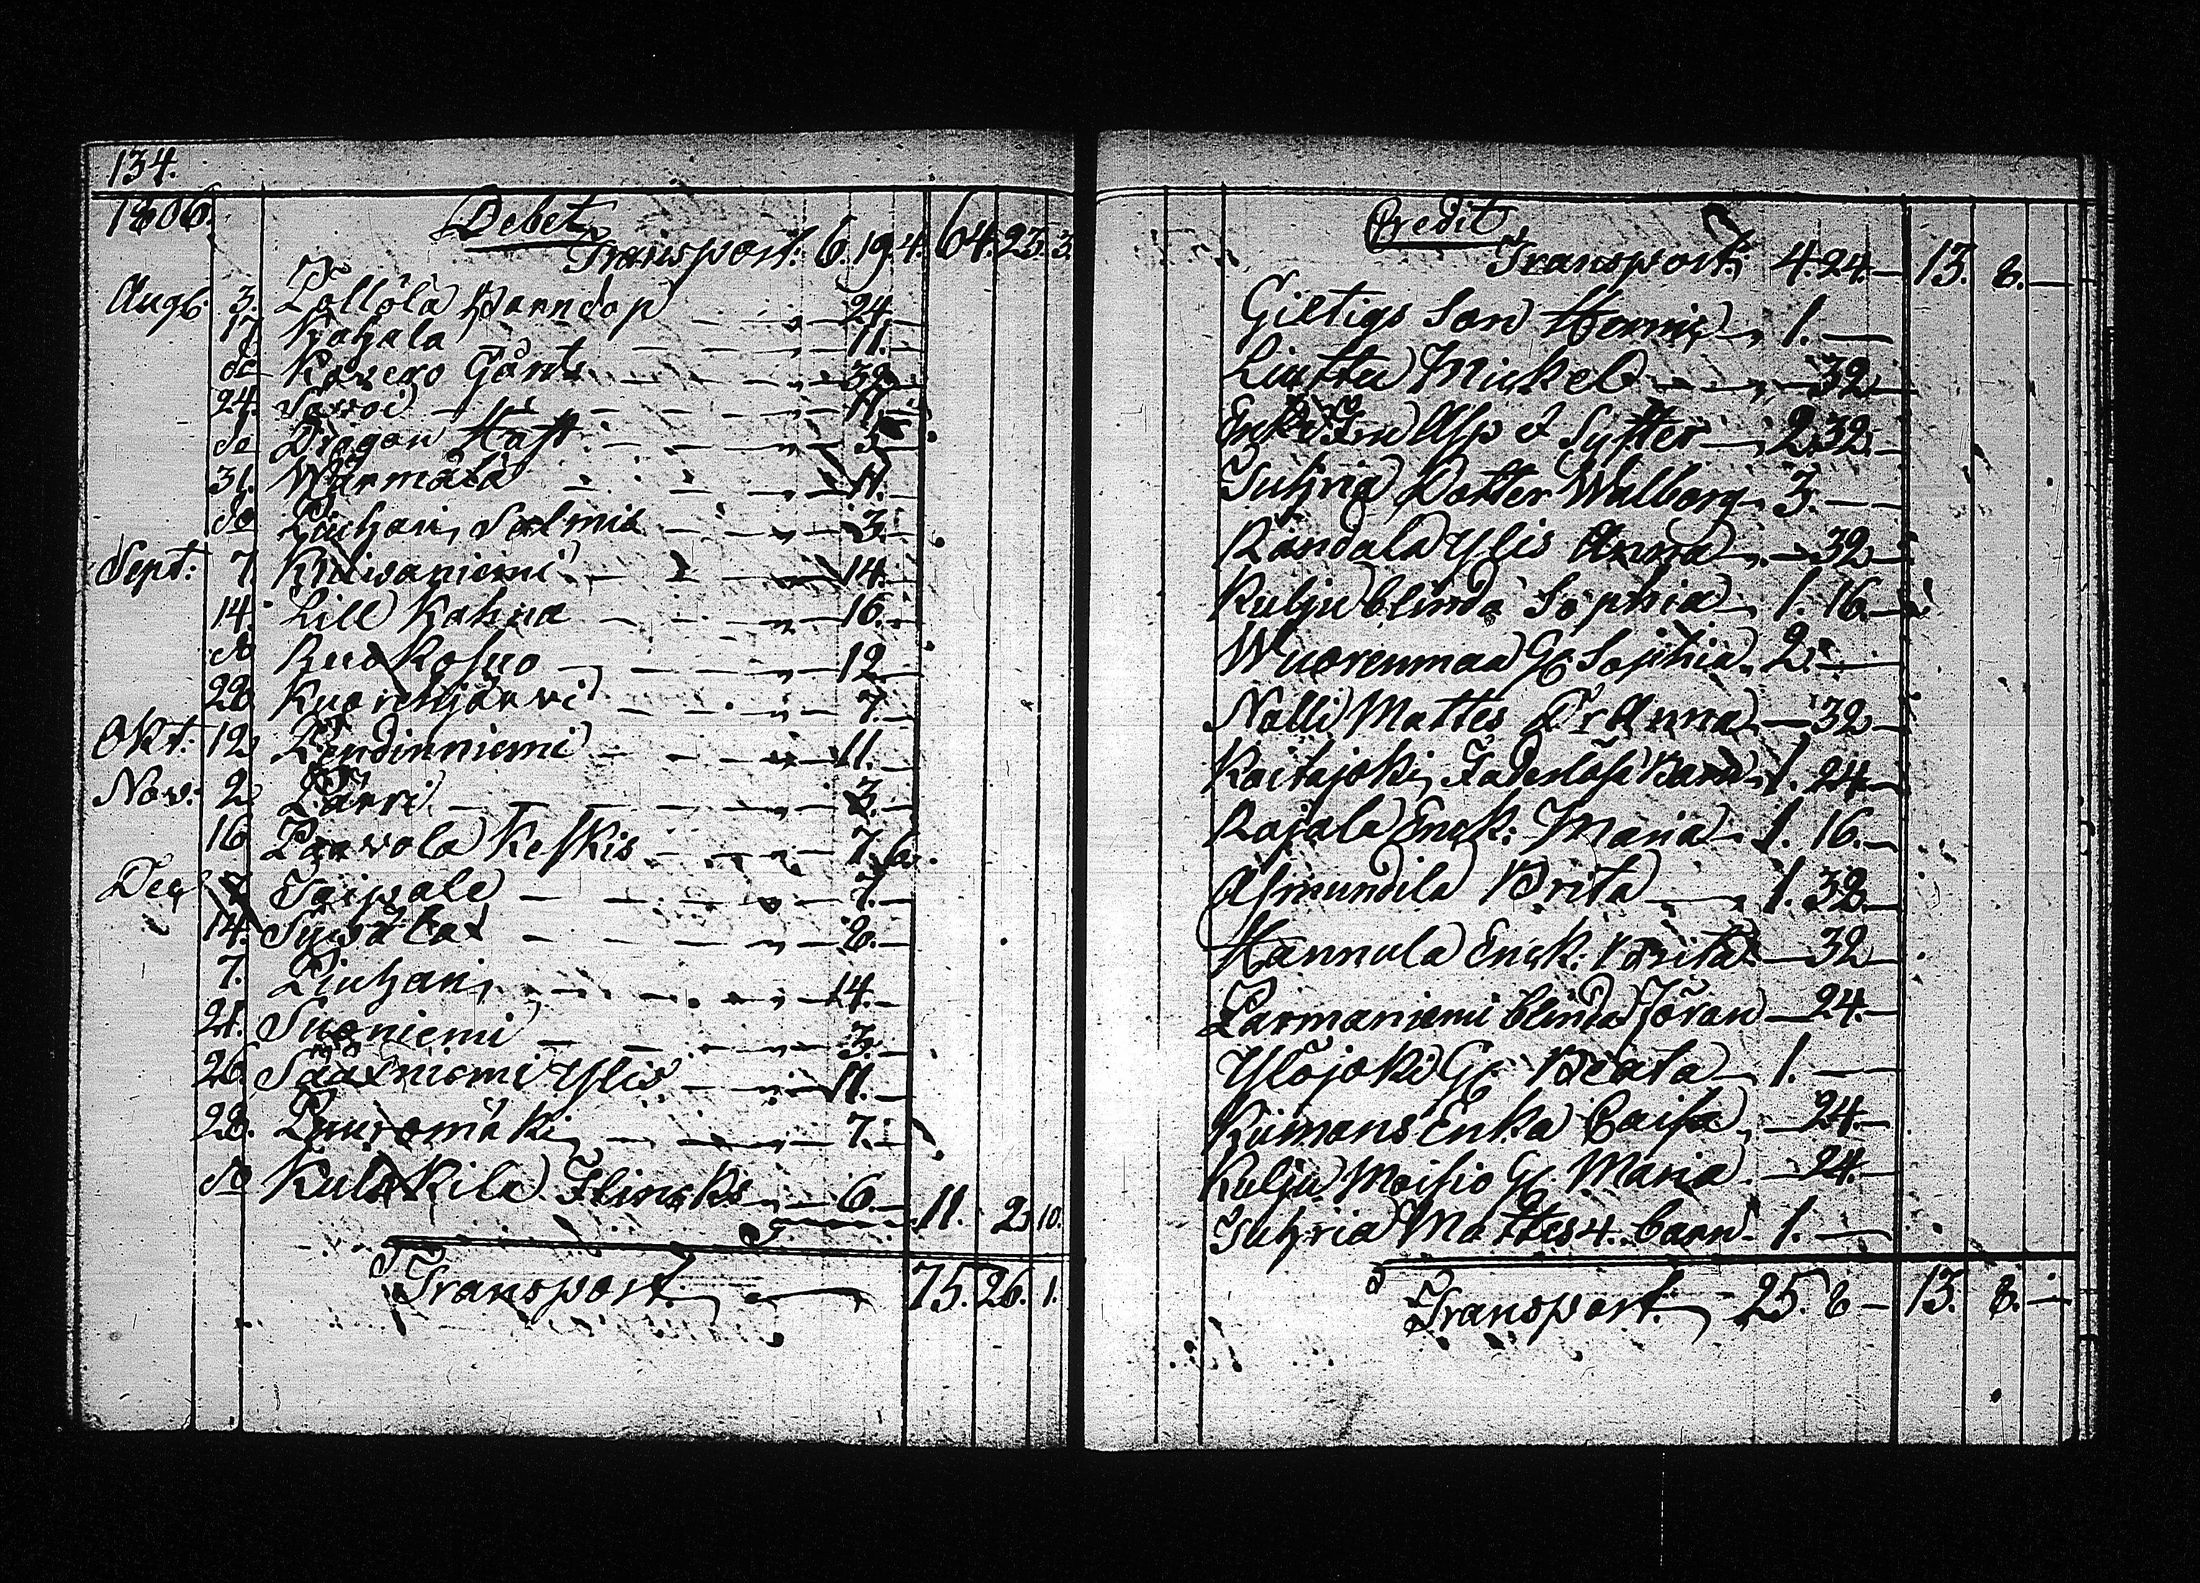 134.
1806. Debet
Transport: 6. 19. 4. 64. 23. 3.
Augs: 3. Pollölä Barndop 24.
17. Kojola 11.
do Kosego Gårds 32.
24. Sawoi 11.
do Dragon Haft 3.
31. Wärmälä 11.
do Liuhari, Salmis 3.
Sept: 7. Kiviwaniemi 14.
14. Lill Kahna 16.
do Ruokosuo 12
28 Kuorehjärwi 7.
Okt: 12 Pendinniemi 11.
Nov: 2 Pärri 3.
16 Parvola Keskis 7. 6.
Dec 7 Taipale 7.
14. Sysälax 8.
7. Liuhari 14.
21. Suoniemi 3.
26. Sääxniemi Ylis 11.
28. Puuromäki 7.
do Kulakila Flincks 6. 11. 2. 10.
Transport 75. 26. 1.
Credit
Transport: 4. 24. 13. 8.
Giltigs Son Henric 1.
Liuttu Mickel 32
Enk: Fru Asp & Syster 2. 32.
Suhria Dotter Walborg 3.
Randala Ylis Anna 32
Kulju blinda Sophia 1. 16.
Wuorenmaa Gl. Sophia 2.
Nalli Mattes Dr Anna 32
Koitajoki Faderlösa Barn 1. 24
Rajala Enck: Maria 1. 16.
Asmundila Brita 1. 32.
Hannula Enck: Brita 32
Parmaniemi blinda Jöran 24.
Ylöjoki Gl. Beata 1.
Kiimans Enka Caisa 24.
Kulju Moisio Gl. Maria 24.
Suhria Mattes 4. barn 1.
Transport: 25. 8 13. 8.